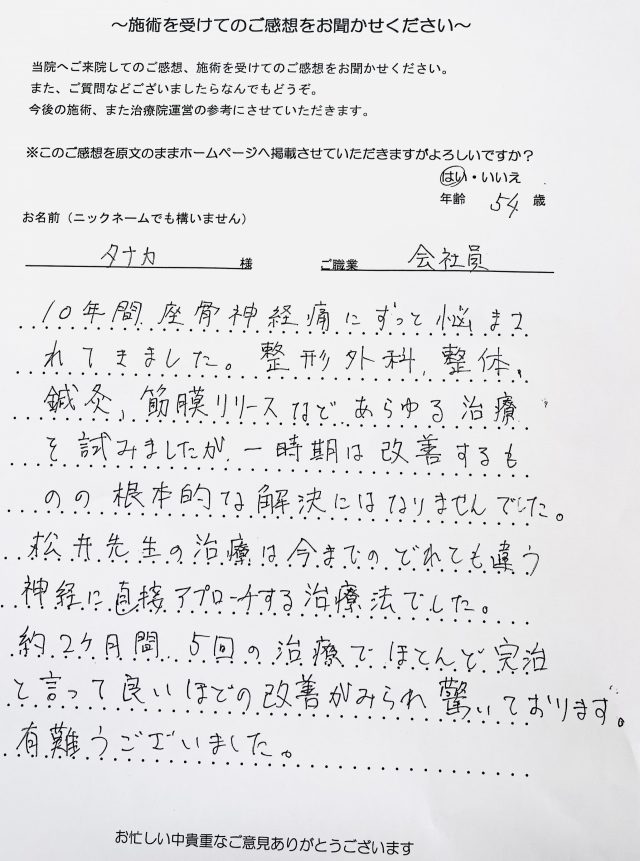 ～施術を受けてのご感想をお聞かせください～
当院へご来院してのご感想、施術を受けてのご感想をお聞かせください。
また、ご質問などございましたらなんでもどうぞ。
今後の施術、また治療院運営の参考にさせていただきます。
※このご感想を原文のままホームページへ掲載させていただきますがよろしいですか？
はい・いいえ
年齢 54 歳
お名前（ニックネームでも構いません）
タナカ 様 ご職業 会社員
10年間座骨神経痛にずっと悩まさ
れてきました。整形外科、整体、
鍼灸、筋膜リリースなどあらゆる治療
を試みましたが、一時期は改善するも
のの根本的な解決にはなりませんでした。
松井先生の治療は今までのどれても違う
神経に直接アプローチする治療法でした。
約2ケ月間、5回の治療でほとんど完治
と言って良いほどの改善がみられ驚いております。
有難うございました。
お忙しい中貴重なご意見ありがとうございます